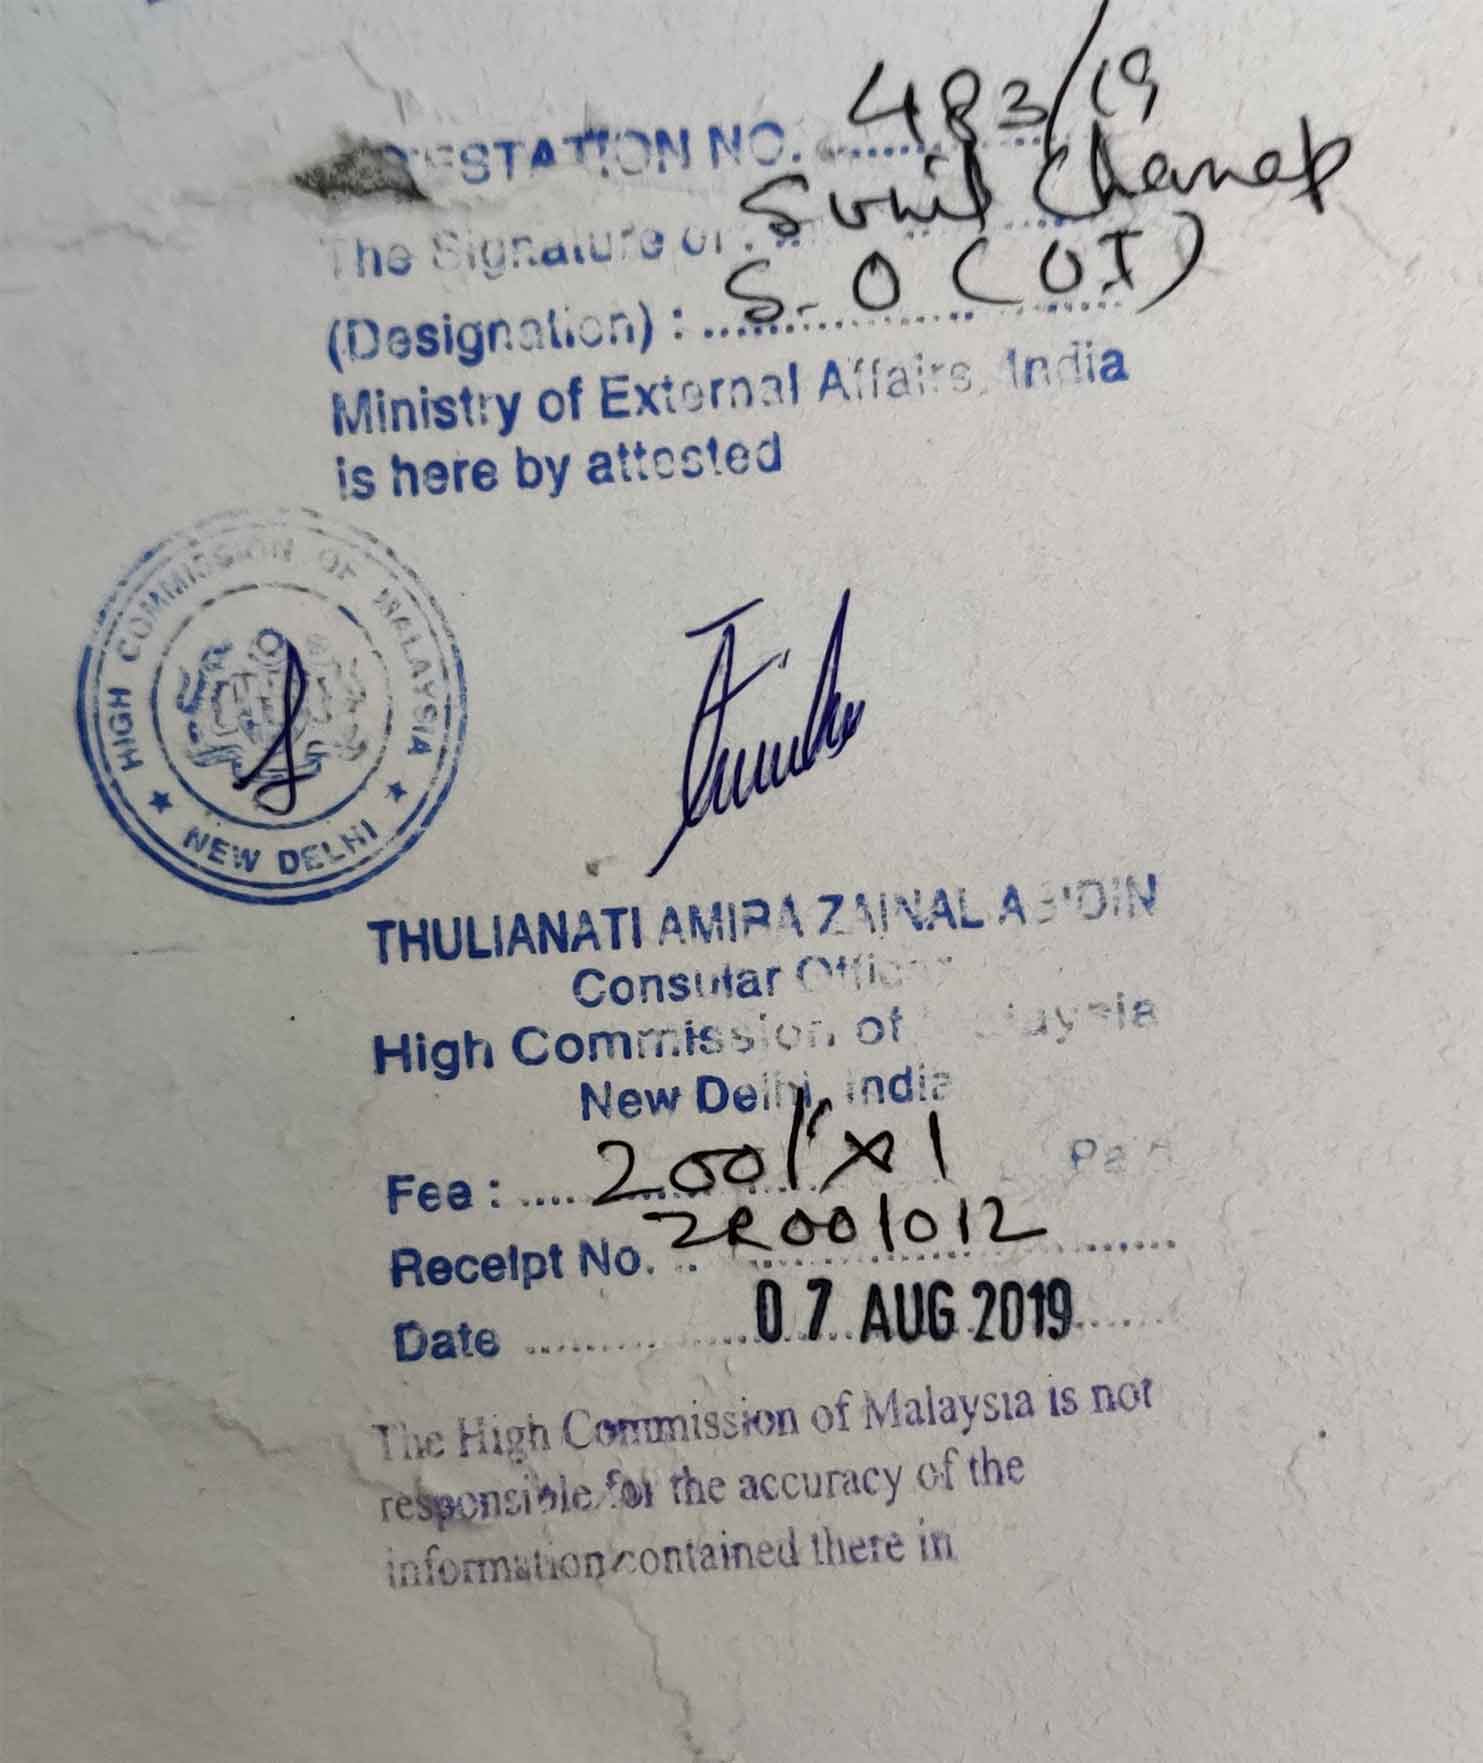 ATTESTATION NO. 483/19
The Signature of : Sunil
(Designation) : S.O (OI)
Ministry of External Affairs, India
is here by attested
HIGH COMMISSION OF MALAYSIA
★ NEW DELHI ★
THULIANATI AMIRA ZAINAL ABIDIN
Consular Officer
High Commission of Malaysia
New Delhi, India
Fee : 200/- x 1 Paid
Receipt No. 2R001012
Date 07 AUG 2019
The High Commission of Malaysia is not
responsible for the accuracy of the
information contained there in